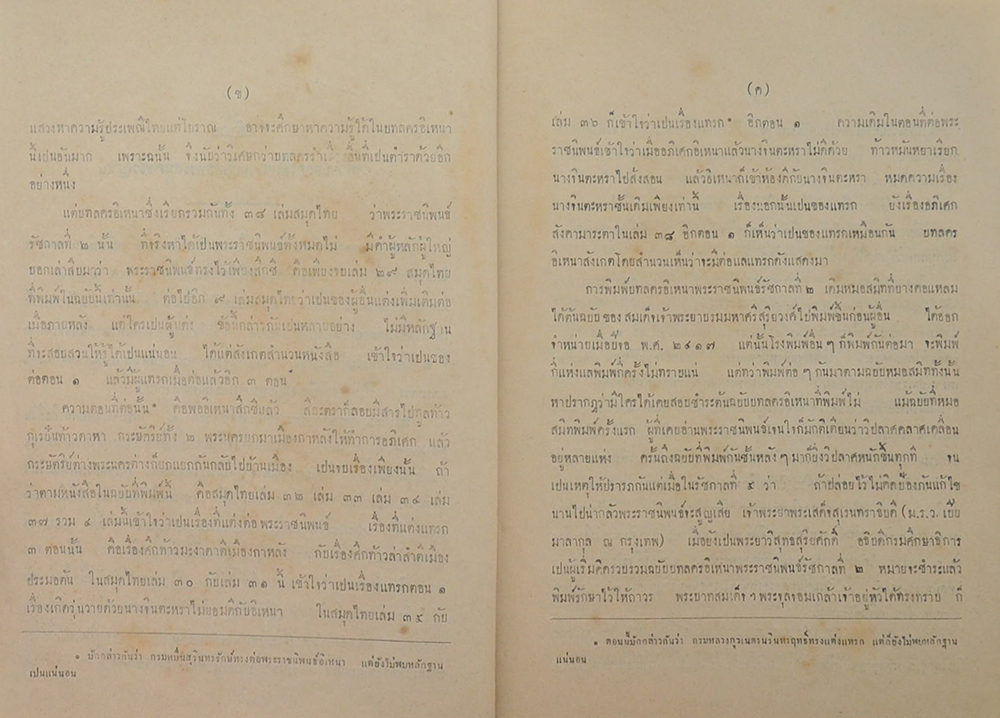 (ข)
แสวงหาความรู้ประเพณีไทยแต่โบราณ อาจจะศึกษาหาความรู้ได้ในบทละครอิเหนา
นี้เป็นอันมาก เพราะฉนั้น จึงนับว่าวิเศษกว่าบทละครรำเรื่องอื่นที่เป็นตำราด้วยอีก
อย่างหนึ่ง
แต่บทละครอิเหนาซึ่งเรียกรวมกันทั้ง ๓๘ เล่มสมุดไทย ว่าพระราชนิพนธ์
รัชกาลที่ ๒ นั้น ที่จริงหาได้เป็นพระราชนิพนธ์ทั้งหมดไม่ มีคำผู้หลักผู้ใหญ่
บอกเล่าสืบมาว่า พระราชนิพนธ์ทรงไว้เพียงสึกชี คือเพียงจบเล่ม ๒๙ สมุดไทย
ที่พิมพ์ในฉบับนี้เท่านั้น ต่อไปอีก ๙ เล่มสมุดไทยว่าเป็นของผู้อื่นแต่งเพิ่มเติมต่อ
เมื่อภายหลัง แต่ใครเป็นผู้แต่ง ข้อนี้กล่าวกันเป็นหลายอย่าง ไม่มีหลักฐาน
ที่จะสอบสวนให้รู้ได้เป็นแน่นอน ได้แต่สังเกตสำนวนหนังสือ เข้าใจว่าเป็นของ
ต่อตอน ๑ แล้วมีผู้แทรกเมื่อต่อแล้วอีก ๓ ตอน
ความตอนที่ต่อนั้น* คือพออิเหนาสึกชีแล้ว สียะตราก็ลอบมีสารไปทูลท้าว
กุเรปันท้าวดาหา กระษัตริย์ทั้ง ๒ พระนครยกมาเมืองกาหลังให้ทำการอภิเศก แล้ว
กระษัตริย์ต่างพระนครต่างก็ยกแยกกันกลับไปบ้านเมือง เป็นจบเรื่องเพียงนั้น ถ้า
ว่าตามหนังสือในฉบับที่พิมพ์นี้ คือสมุดไทยเล่ม ๓๒ เล่ม ๓๓ เล่ม ๓๔ เล่ม
๓๗ รวม ๔ เล่มนี้เข้าใจว่าเป็นเรื่องที่แต่งต่อพระราชนิพนธ์ เรื่องที่แต่งแทรก
๓ ตอนนั้น คือเรื่องศึกท้าวมะงาดาตีเมืองกาหลัง กับเรื่องศึกท้าวล่าสำตีเมือง
ประมอตัน ในสมุดไทยเล่ม ๓๐ กับเล่ม ๓๑ นี้ เข้าใจว่าเป็นเรื่องแทรกตอน ๑
เรื่องเกิดวุ่นวายด้วยนางจินตะหราไม่ยอมดีกับอิเหนา ในสมุดไทยเล่ม ๓๕ กับ
* มักกล่าวกันว่า กรมหมื่นสุรินทรรักษ์ทรงต่อพระราชนิพนธ์อิเหนา แต่ยังไม่พบหลักฐาน
เป็นแน่นอน
(ค)
เล่ม ๓๖ ก็เข้าใจว่าเป็นเรื่องแทรก* อีกตอน ๑ ความเดิมในตอนที่ต่อพระ
ราชนิพนธ์เข้าใจว่าเมื่ออภิเศกอิเหนาแล้วนางจินตะหราไม่ดีด้วย ท้าวหมันหยาเรียก
นางจินตะหราไปสั่งสอน แล้วอิเหนาก็เข้าห้องดีกับนางจินตะหรา หมดความเรื่อง
นางจินตะหราชั้นเดิมเพียงเท่านี้ เรื่องนอกนั้นเป็นของแทรก ยังเรื่องอภิเศก
สังคามาระตาในเล่ม ๓๘ อีกตอน ๑ ก็เห็นว่าเป็นของแทรกเหมือนกัน บทละคร
อิเหนาสังเกตโดยสำนวนเห็นว่าจะมีต่อแลแทรกดังแสดงมา
การพิมพ์บทละครอิเหนาพระราชนิพนธ์รัชกาลที่ ๒ เดิมหมอสมิทที่บางคอแหลม
ได้ต้นฉบับของสมเด็จเจ้าพระยาบรมมหาศรีสุริยวงศ์ไปพิมพ์ขึ้นก่อนผู้อื่น ได้ออก
จำหน่ายเมื่อปีจอ พ.ศ. ๒๔๑๗ แต่นั้นโรงพิมพ์อื่น ๆ ก็พิมพ์กันต่อมา จะพิมพ์
กี่แห่งแลพิมพ์กี่ครั้งไม่ทราบแน่ แต่ทว่าพิมพ์ต่อ ๆ กันมาตามฉบับหมอสมิททั้งนั้น
หาปรากฏว่ามีใครได้เคยสอบชำระต้นฉบับบทละครอิเหนาที่พิมพ์ไม่ แม้ฉบับที่หมอ
สมิทพิมพ์ครั้งแรก ผู้ที่เคยอ่านพระราชนิพนธ์เจนใจก็มักติเตียนว่าวิปลาศคลาศเคลื่อน
อยู่หลายแห่ง ครั้นถึงฉบับที่พิมพ์กันชั้นหลัง ๆ มาก็ยิ่งวิปลาศหนักขึ้นทุกที จน
เป็นเหตุให้ปรารภกันแต่เมื่อในรัชกาลที่ ๕ ว่า ถ้าปล่อยไว้ไม่คิดป้องกันแก้ไข
นานไปน่ากลัวพระราชนิพนธ์จะสูญเสีย เจ้าพระยาพระเสด็จสุเรนทราธิบดี (ม.ร.ว. เปีย
มาลากุล ณ กรุงเทพ) เมื่อยังเป็นพระยาวิสุทธสุริยศักดิ์ อธิบดีกรมศึกษาธิการ
เป็นผู้เริ่มคิดรวบรวมฉบับบทละครอิเหนาพระราชนิพนธ์รัชกาลที่ ๒ หมายจะชำระแล้ว
พิมพ์รักษาไว้ให้ถาวร พระบาทสมเด็จ ฯ พระจุลจอมเกล้าเจ้าอยู่หัวได้ทรงทราบ ก็
* ตอนนี้มักกล่าวกันว่า กรมหลวงภูวเนตรนรินทรฤทธิ์ทรงแต่งแทรก แต่ก็ยังไม่พบหลักฐาน
แน่นอน